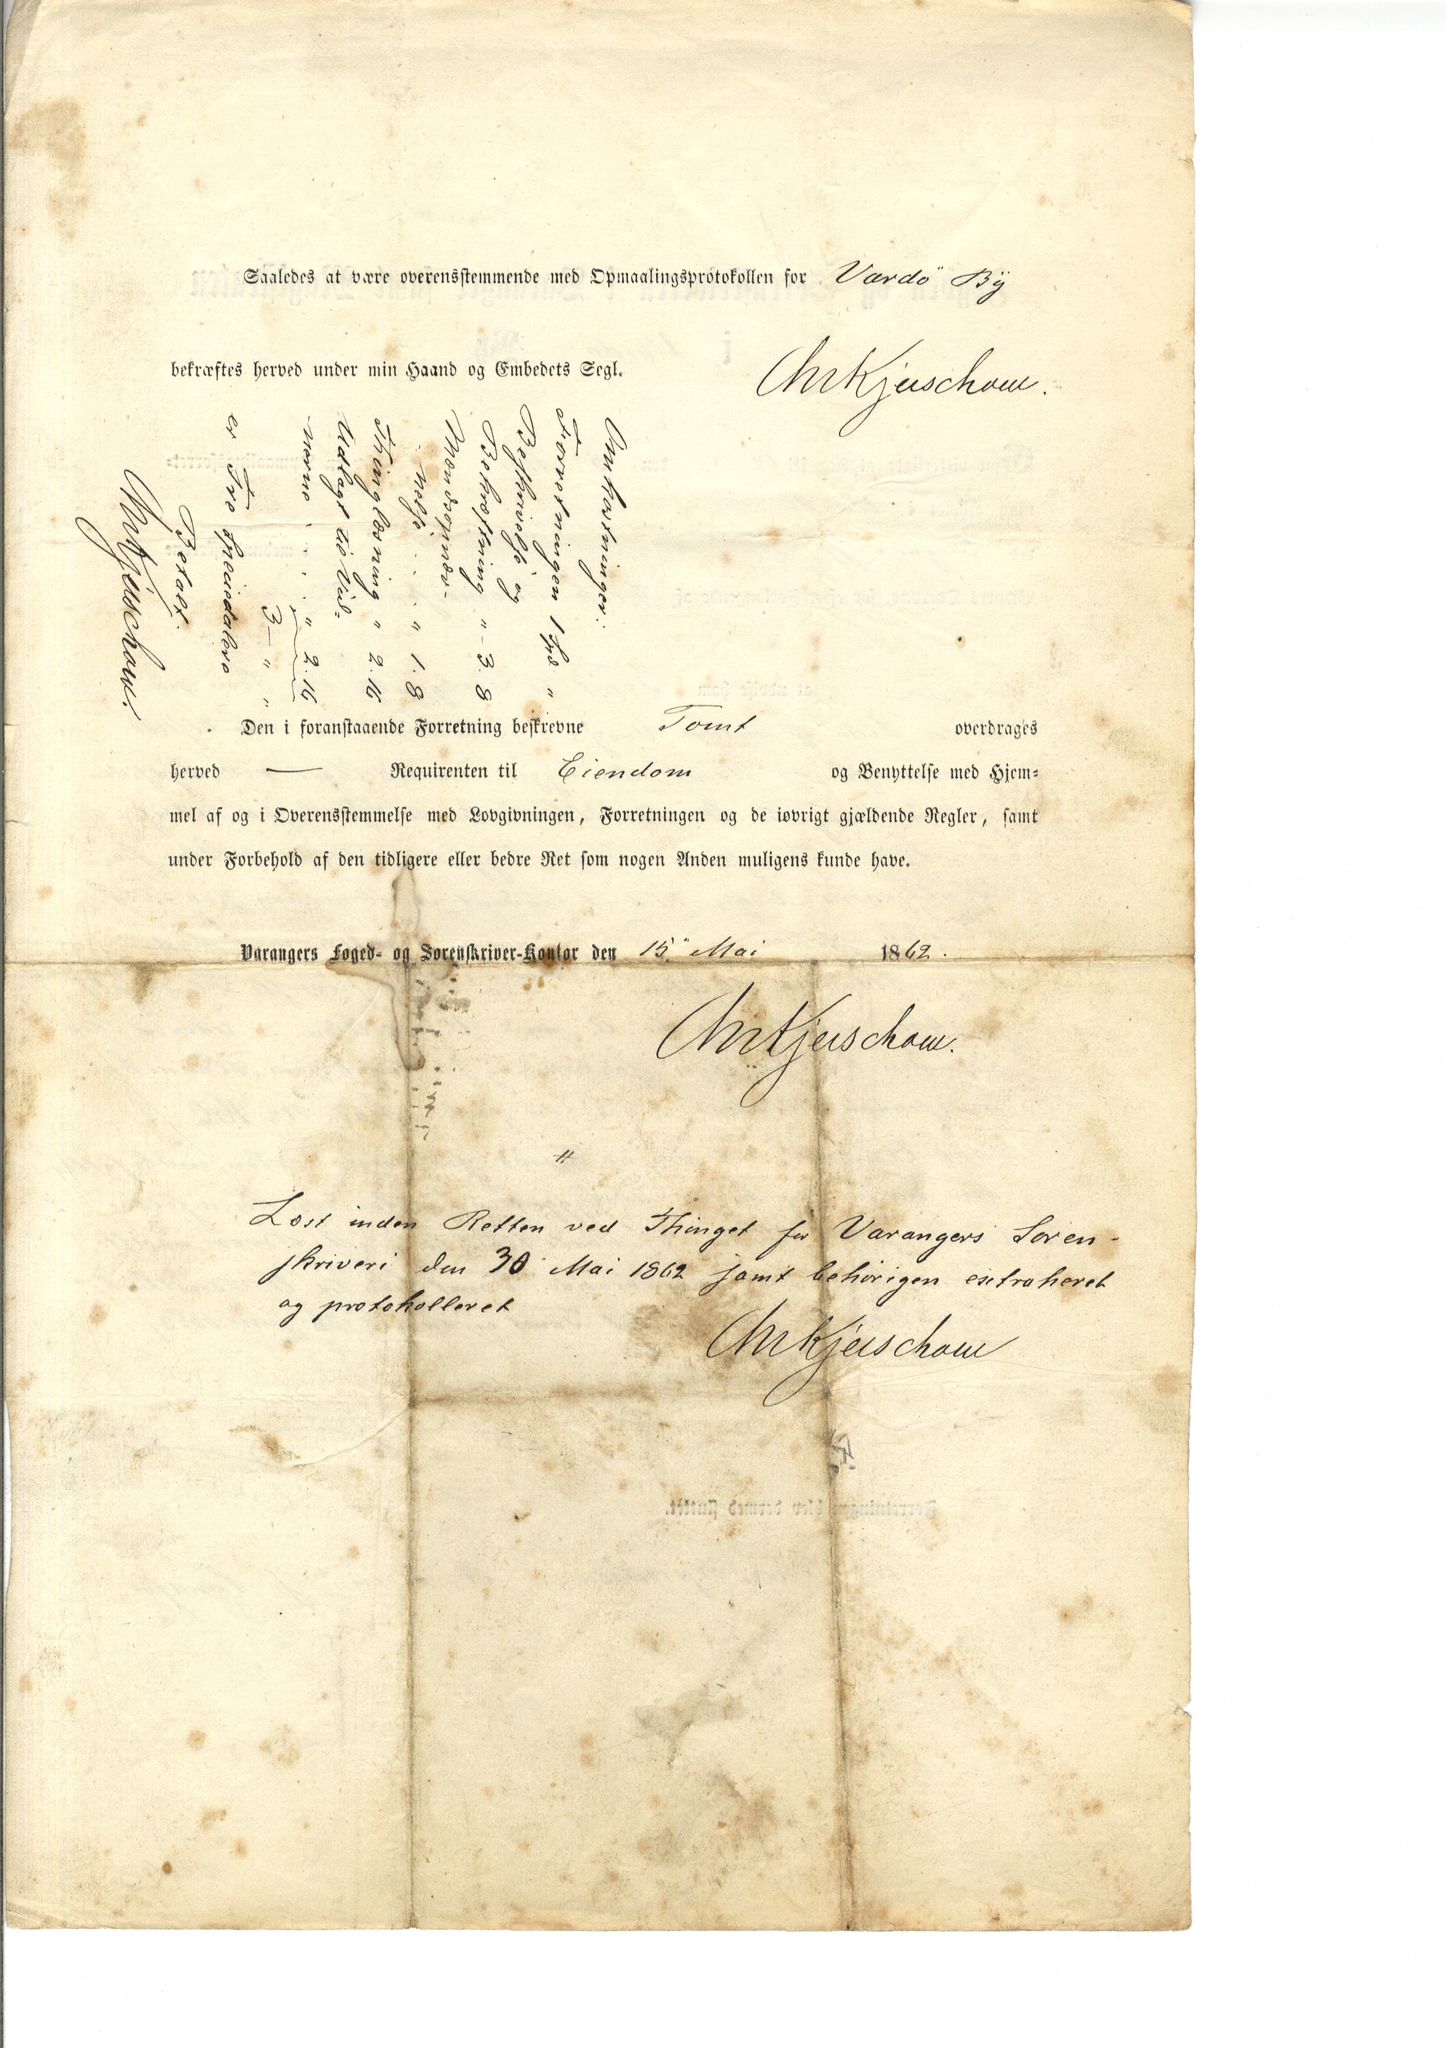 Saaledes at være overensstemmende med Opmaalingsprotokollen for Vardö By
bekræftes herved under min Haand og Embedets Segl.
Chr Kjerschow.
Omkostninger:
Forretningen 1 Spd "
Beskrivelse og
Bekræftning " - 3. 8
Mændsopnæv-
nelse . . " 1. 8
Thinglæsning " 2. 16
Udlagt til Vid-
nerne . . . " 2. 16
3 - " "
er Tre Speciedalere
Betalt.
Chr Kjerschow.
Den i foranstaaende Forretning beskrevne Tomt overdrages
herved — Requirenten til Eiendom og Benyttelse med Hjem-
mel af og i Overensstemmelse med Lovgivningen, Forretningen og de iøvrigt gjældende Regler, samt
under Forbehold af den tidligere eller bedre Ret som nogen Anden muligens kunde have.
Varangers Foged- og Sorenskriver-Kontor den 15 Mai 1862.
Chr Kjerschow.
Læst inden Retten ved Thinget for Varangers Soren-
skriveri den 30 Mai 1862 samt behörigen extraheret
og protokolleret
Chr Kjerschow
Forretningen blev dermed sluttet.